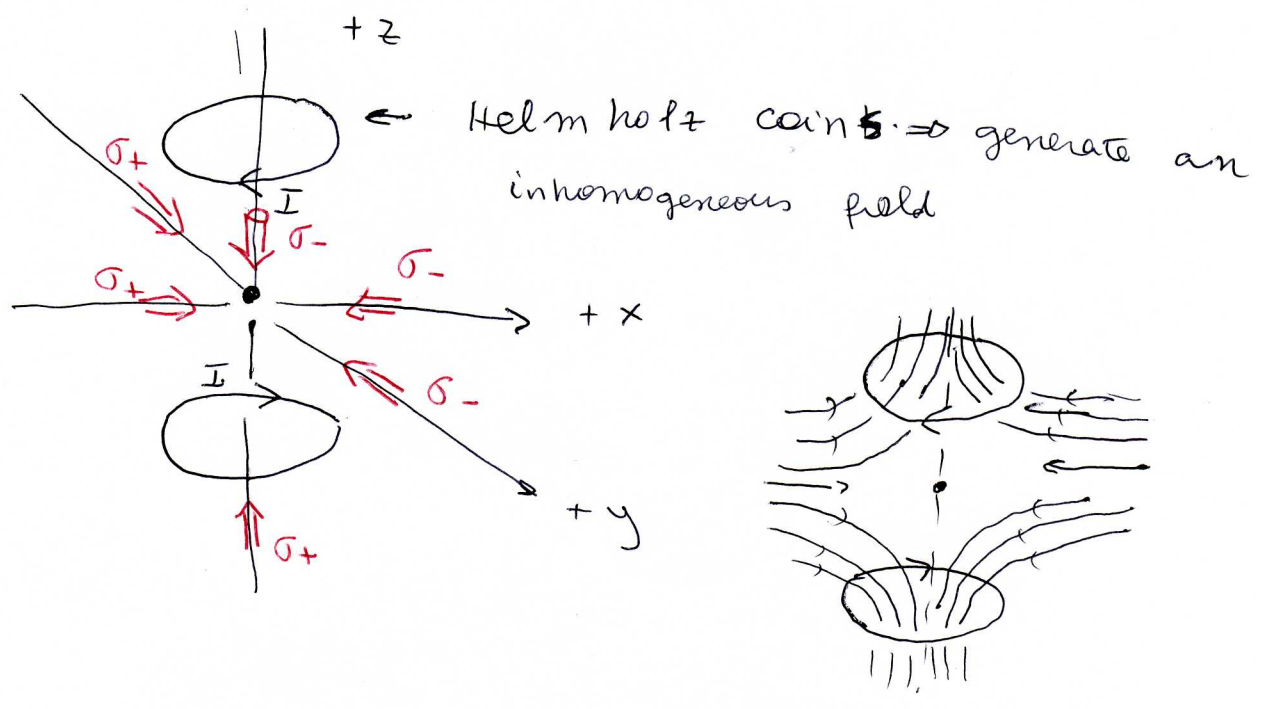 + z
← Helmholtz coins. ⇒ generate an
inhomogeneous field
σ+
I
σ-
σ+
σ-
+ x
I
σ-
+ y
σ+